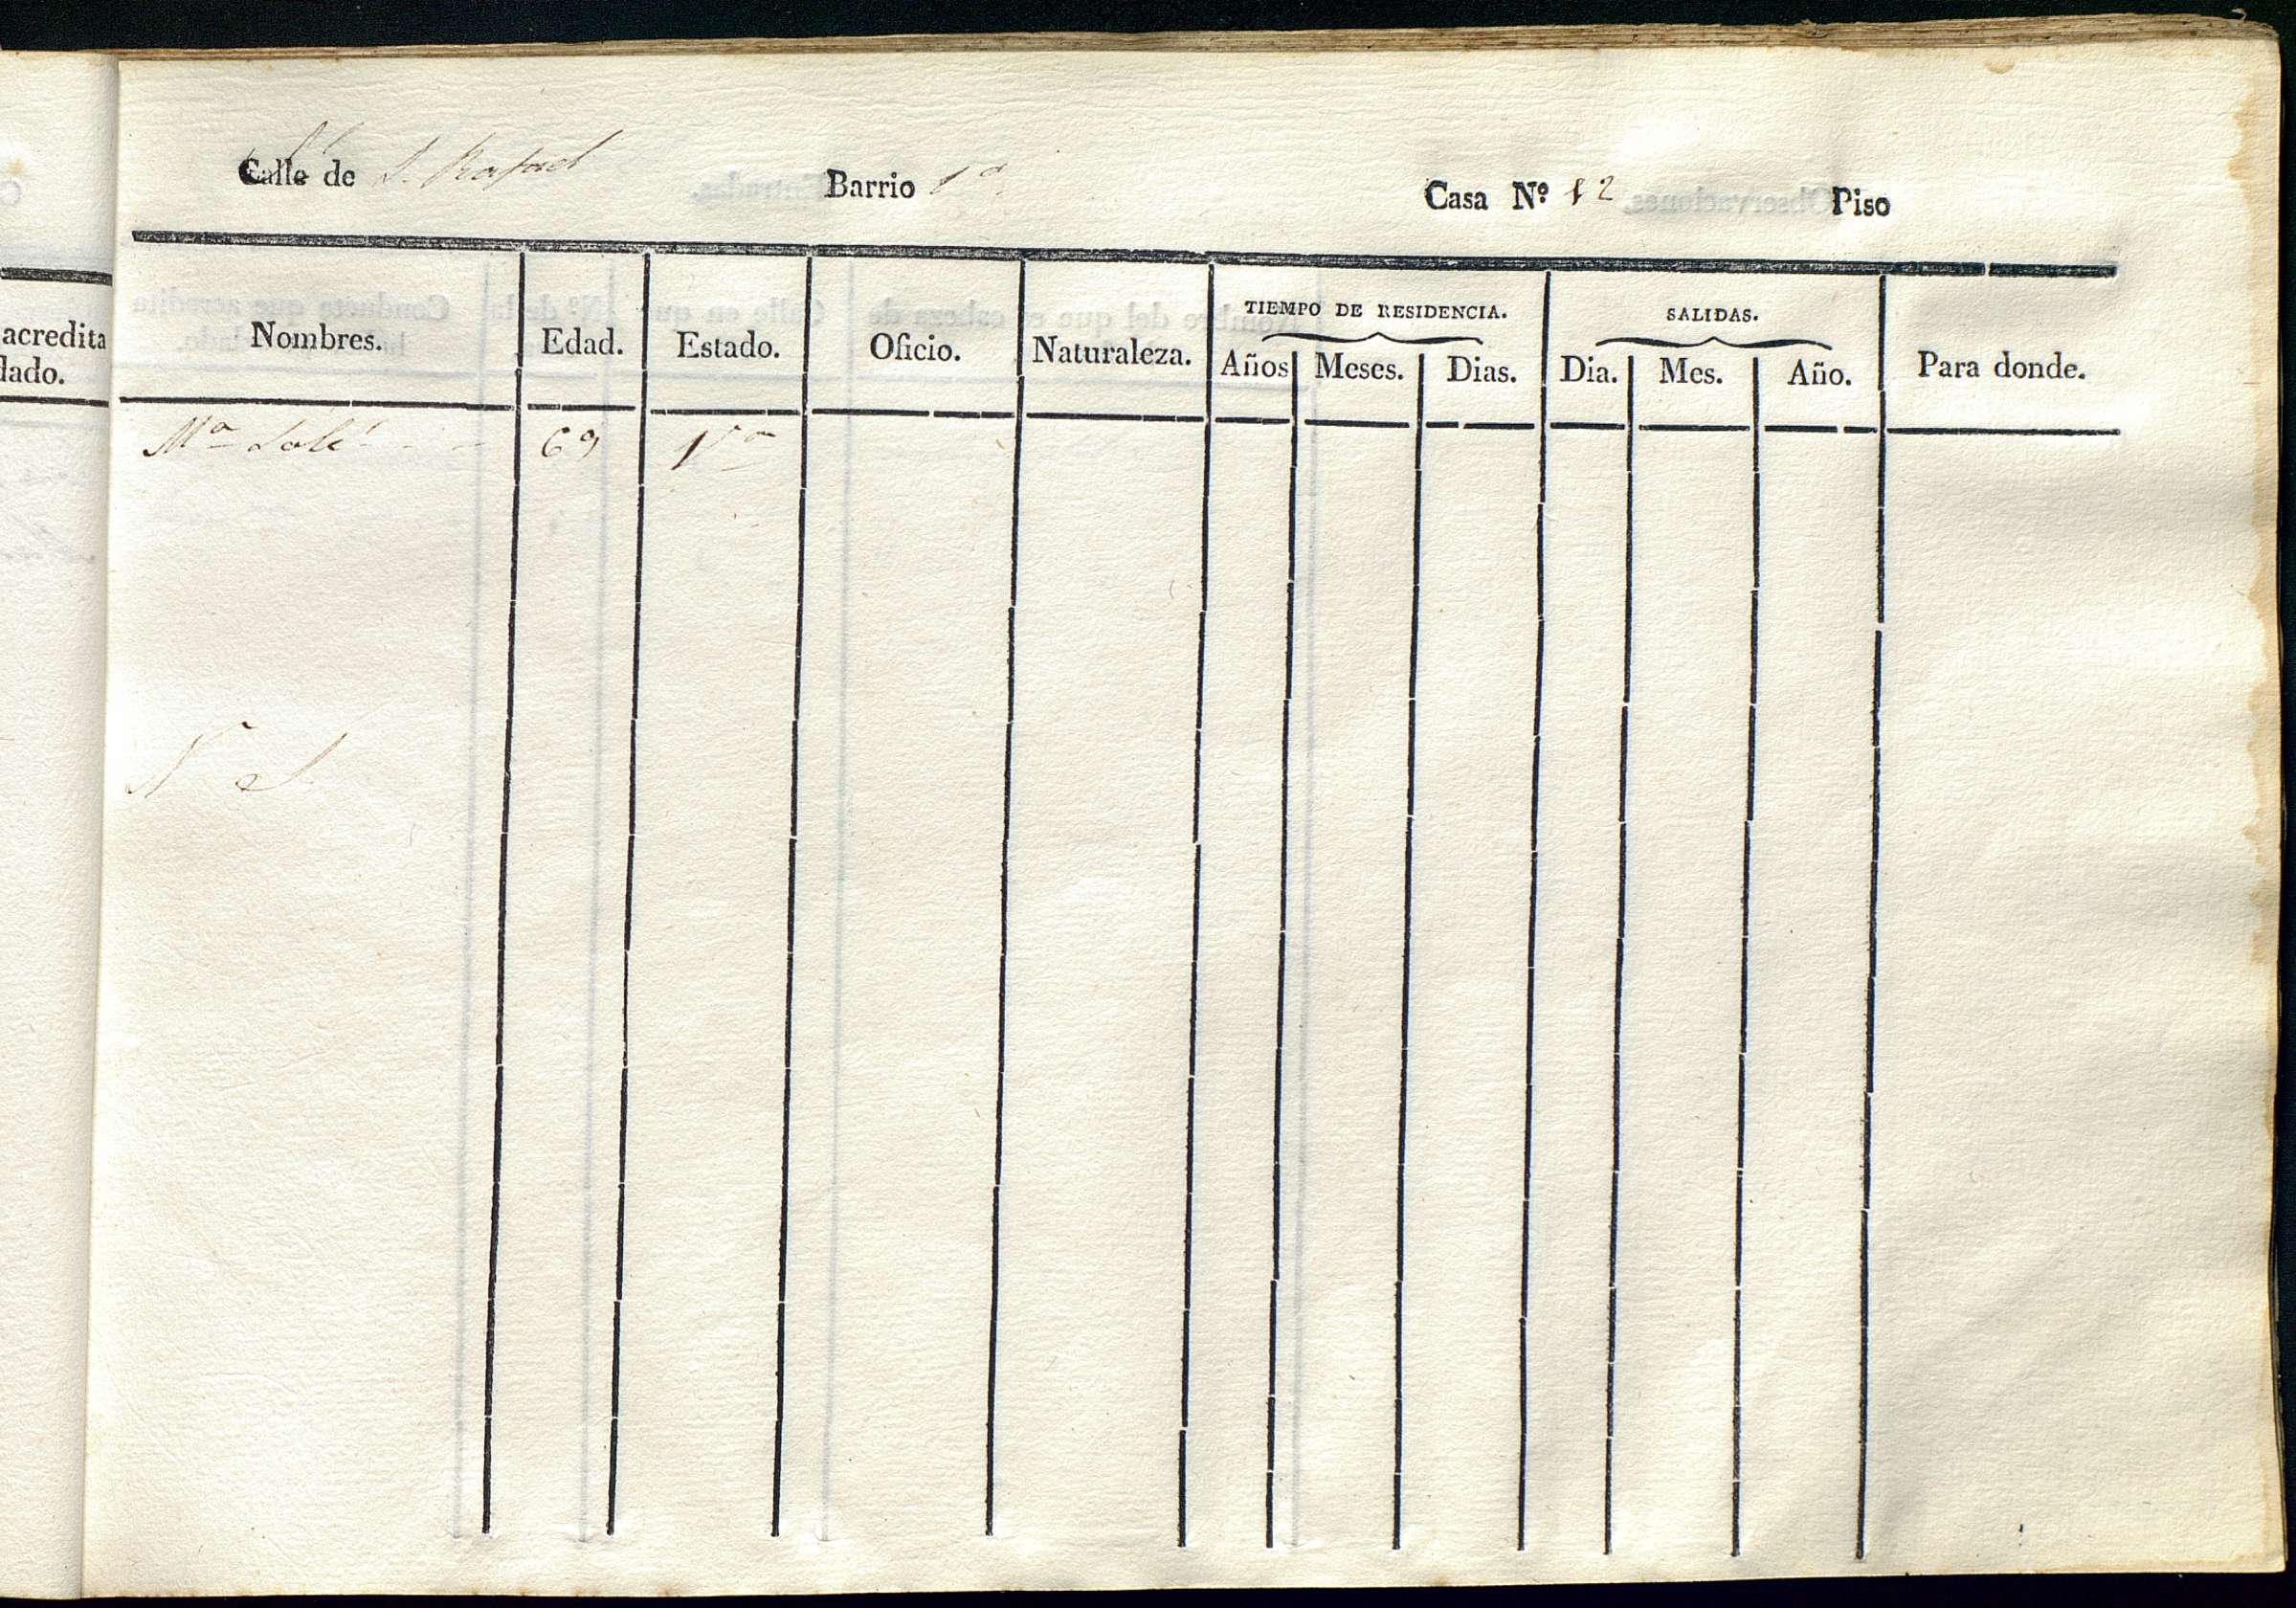 Calle de S. Rafael Barrio 1º Casa Nº 12 Piso
acredita
dado.
Nombres. Edad. Estado. Oficio. Naturaleza. TIEMPO DE RESIDENCIA. SALIDAS. Para donde.
Años Meses. Dias. Dia. Mes. Año.
Mª Solé 69 Vª